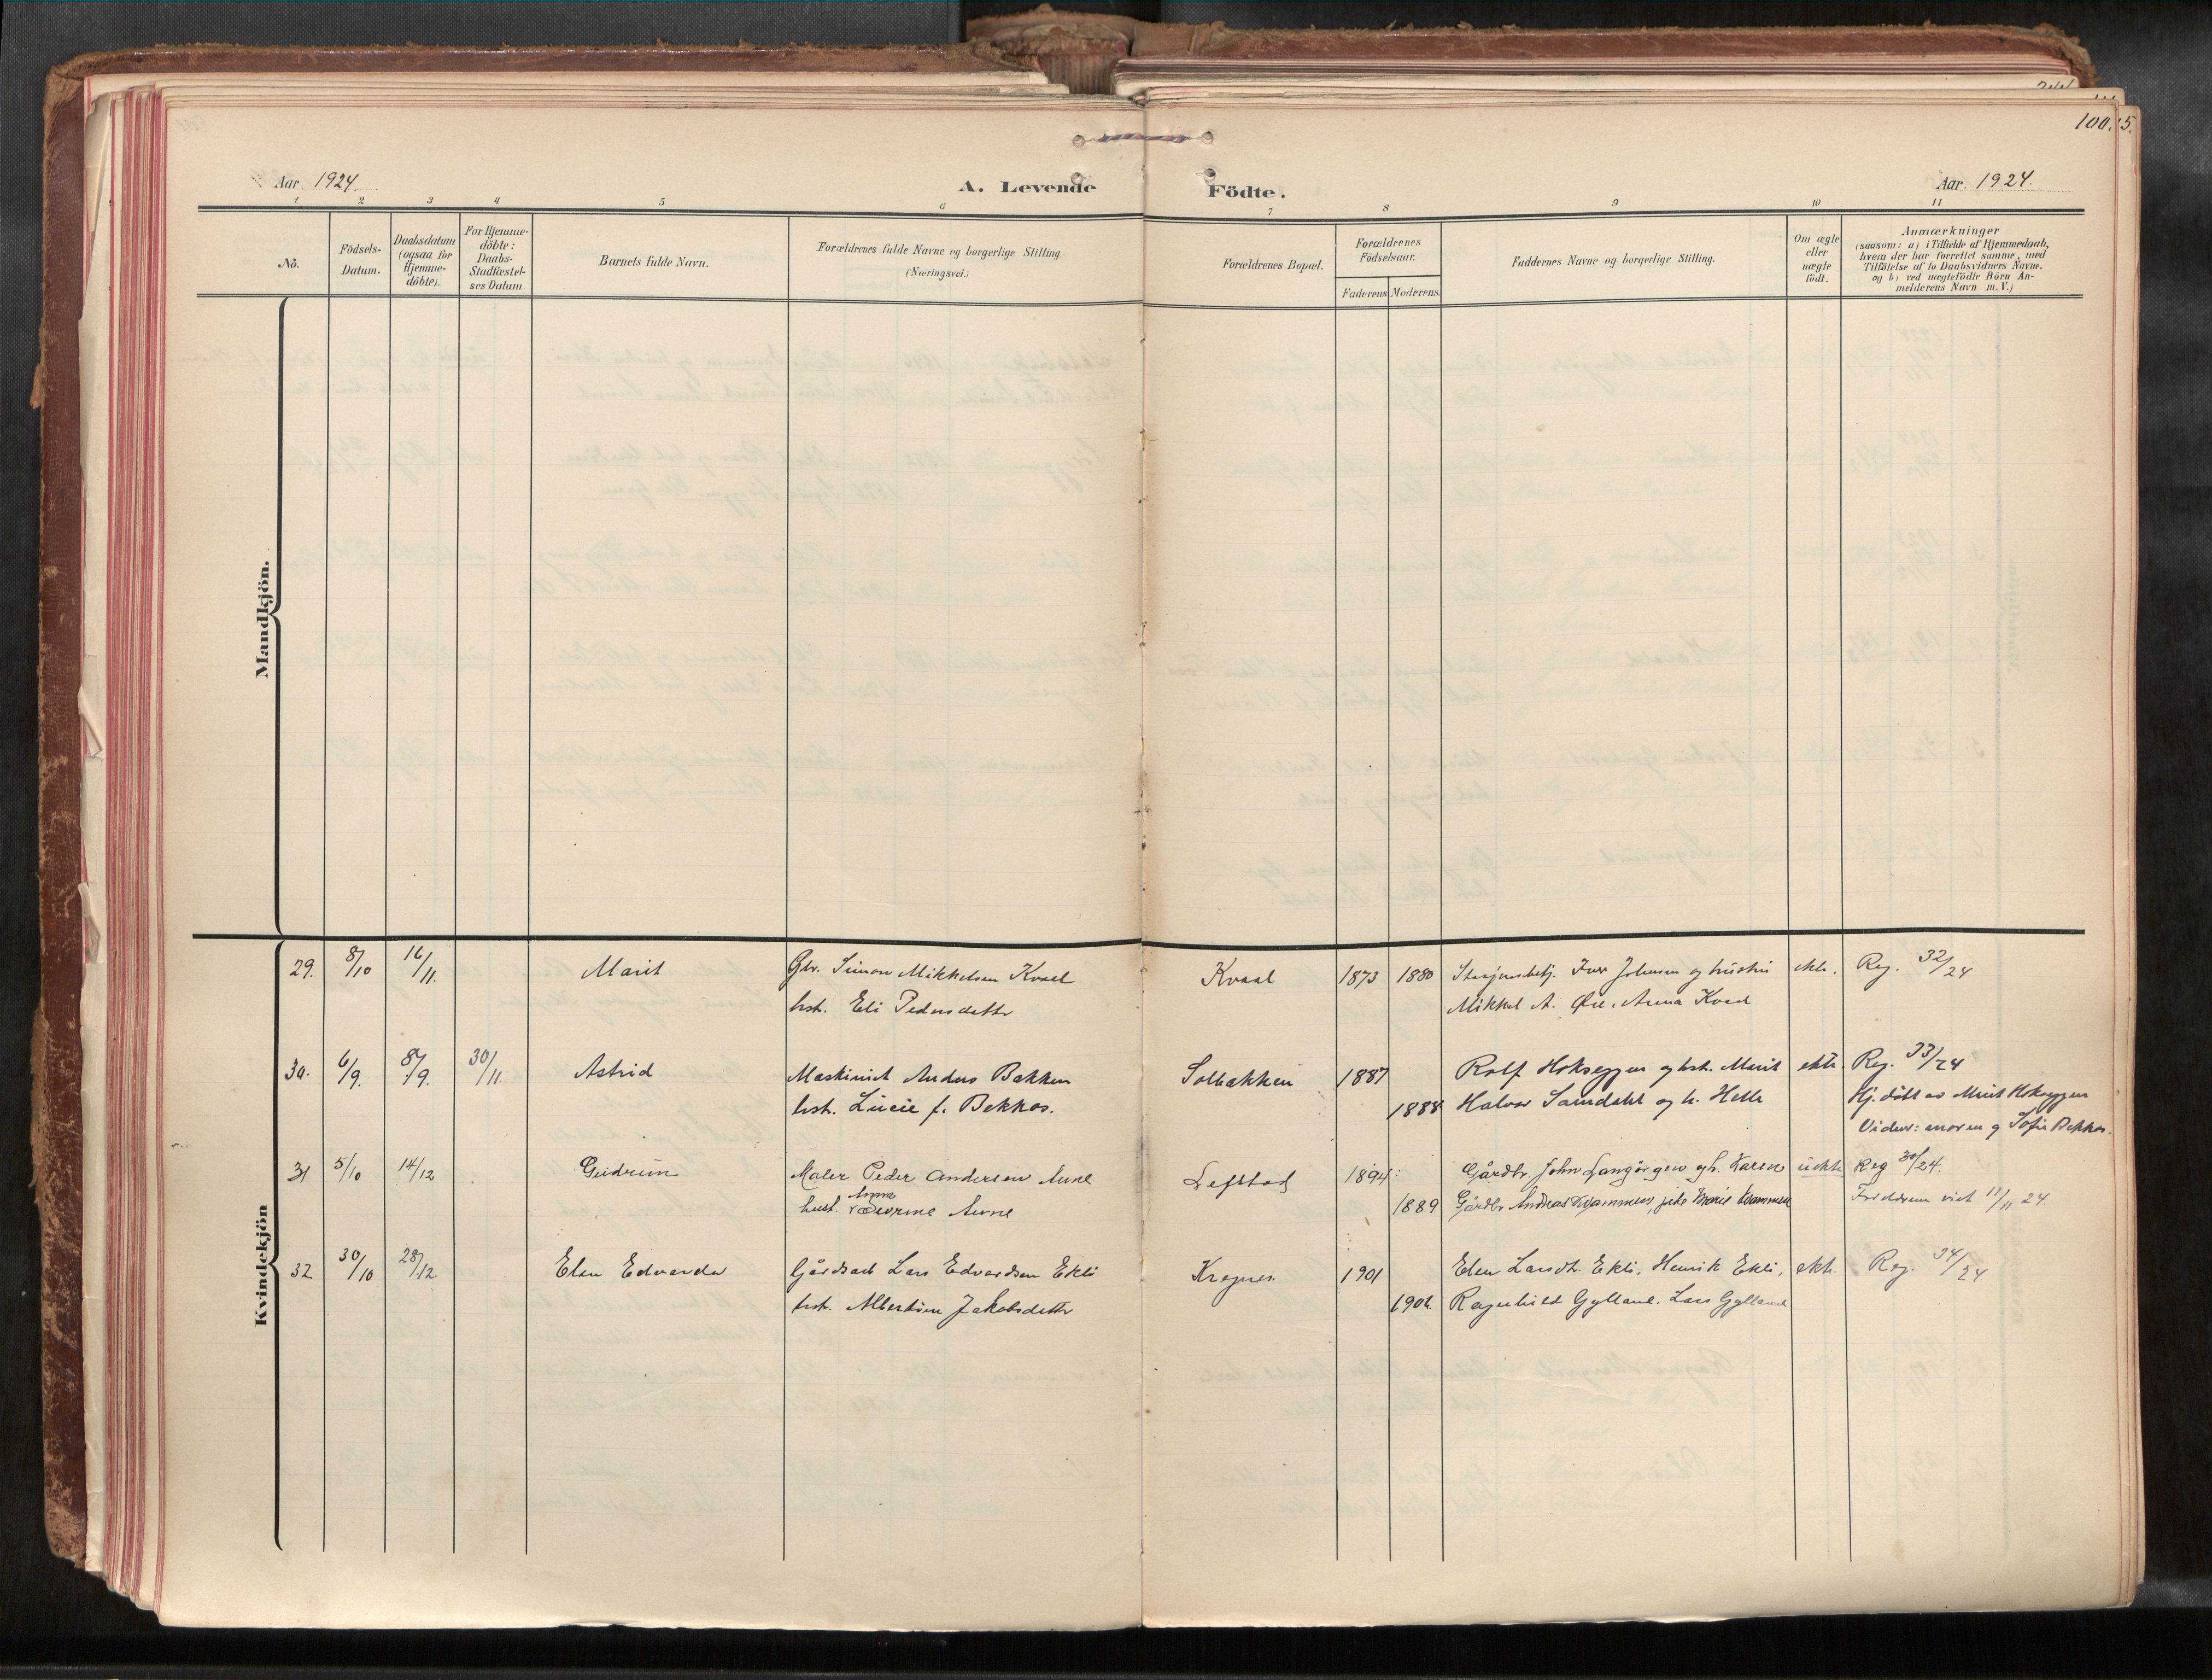 100.
5.
Aar 1924.
A. Levende Födte.
Aar. 1924.
1 2 3 4 5 6 7 8 9 10 11
No.
Födsels-
Datum.
Daabsdatum
(ogsaa for
Hjemme-
döbte).
For Hjemme-
döbte:
Daabs-
Stadfæstel-
ses Datum.
Barnets fulde Navn.
Forældrenes fulde Navne og borgerlige Stilling
(Næringsvei.)
Forældrenes Bopæl.
Forældrenes
Födselsaar.
Faderens Moderens.
Faddernes Navne og borgerlige Stilling.
Om ægte
eller
uægte
födt.
Anmærkninger
(saasom: a) i Tilfælde af Hjemmedaab,
hvem der har forrettet samme, med
Tilföielse af to Daabsvidners Navne.
og b) ved uægtefödte Börn An-
melderens Navn m. V.)
Mandkjön.
Kvindekjön
29. 8/10 16/11. Marit Gbr. Simon Mikkelsen Kvaal Kvaal 1873 1880 Iver Johnsen og hustru ekte. Reg. 32/24
hst. Eli Pedersdatter Mikkel A. Øie. Anna Kvaal
30. 6/9. 8/9. 30/11. Astrid Maskinist Anders Bakken Solbakken 1887 Rolf Hokseggen og hst. Marit ekte. Reg. 33/24
hst. Lucie f. Bekkos. 1888 Halvor Samdahl og h. Helle Hj. døbt av Marit Hokseggen
Vidner: moren og Sofie Bekkos.
31 5/10 14/12 Gudrun Maler Peder Andersen Aune Leftstad 1894 Gårdbr. John Langørgen og h. Karen uekte Reg 30/24.
hust. Anna Aune 1889 Gårdbr Andreas Kvammen, pike Marie Kvammen Foreldrene viet 11/11 24.
32 30/10 28/12 Elen Edvarda Gårdsarb Lars Edvardsen Ekli Kregnes 1901 Elen Larsdt. Ekli, Henrik Ekli, ekte. Reg. 34/24
hst. Albertine Jakobsdatter 1902. Ragnhild Gylland. Lars Gylland